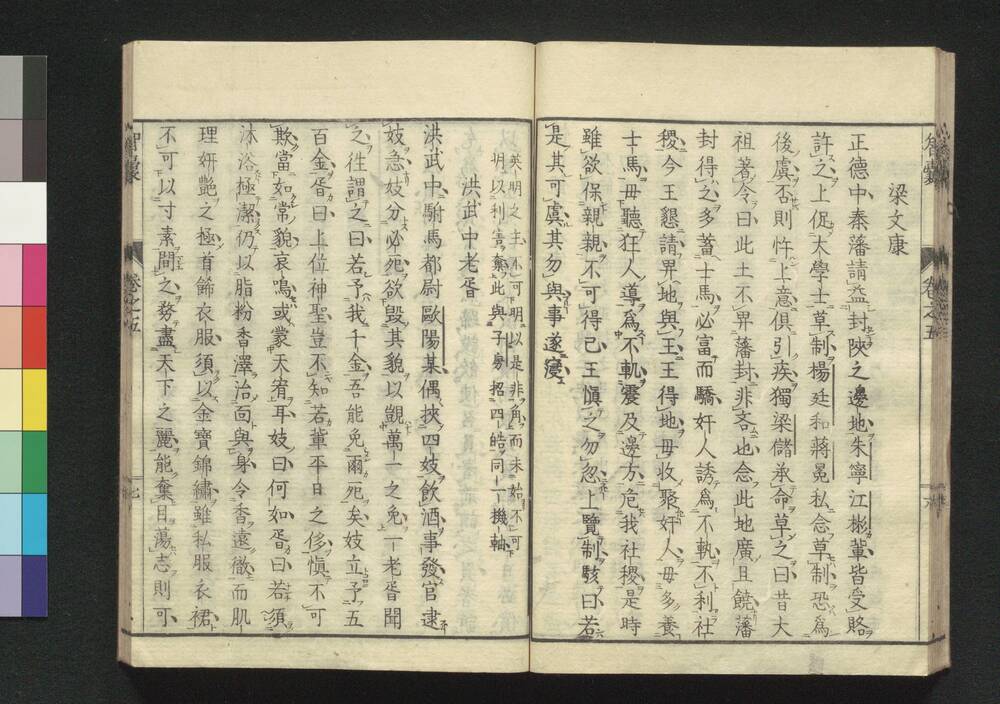 梁文康
正德中秦藩請益封陝之邊地朱寧江彬輩皆受賂
許之上促大學士草制楊廷和蔣冕私念草制恐爲
後虞否則忤上意俱引疾獨梁儲承命草之曰昔太
祖著令曰此土不畀藩封非吝也念此地廣且饒藩
封得之多蓄士馬必富而驕奸人誘爲不軌不利社
稷今王懇請畀地與王王得地毋收聚奸人毋多養
士馬毋聽狂人導爲不軌震及邊方危我社稷是時
雖欲保親親不可得已王愼之勿忽上覽制駭曰若
是其可虞其勿與事遂寢
英明之主不可明以是非角而未始不可
明以利害奪此與子房招四皓同一機軸
洪武中老胥
洪武中駙馬都尉歐陽某偶挾四妓飮酒事發官逮
妓急妓分必死欲毀其貌以覬萬一之免一老胥聞
之往謂之曰若予我千金吾能免爾死矣妓立予五
百金胥曰上位神聖豈不知若輩平日之侈愼不可
欺當如常貌哀鳴或蒙天宥耳妓曰何如胥曰若須
沐浴極潔仍以脂粉香澤治面與身令香遠徹而肌
理妍艷之極首飾衣服須以金寶錦繡雖私服衣裙
不可以寸素間之務盡天下之麗能奪目蕩志則可
智囊
卷之五
六
智囊
卷之五
七